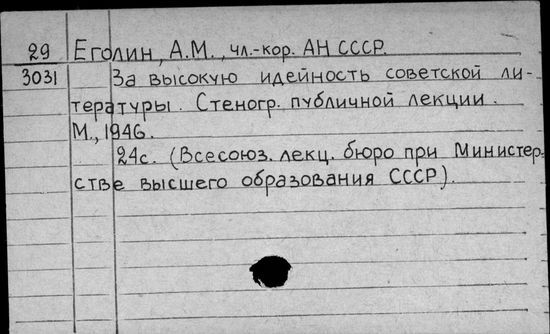 29 Еголин, А.М., чл.-кор. АН СССР.
3031 За высокую идейность советской ли-
тературы. Стеногр. публичной лекции.
М., 1946.
24с. (Всесоюз. лекц. бюро при Министер-
стве высшего образования СССР).